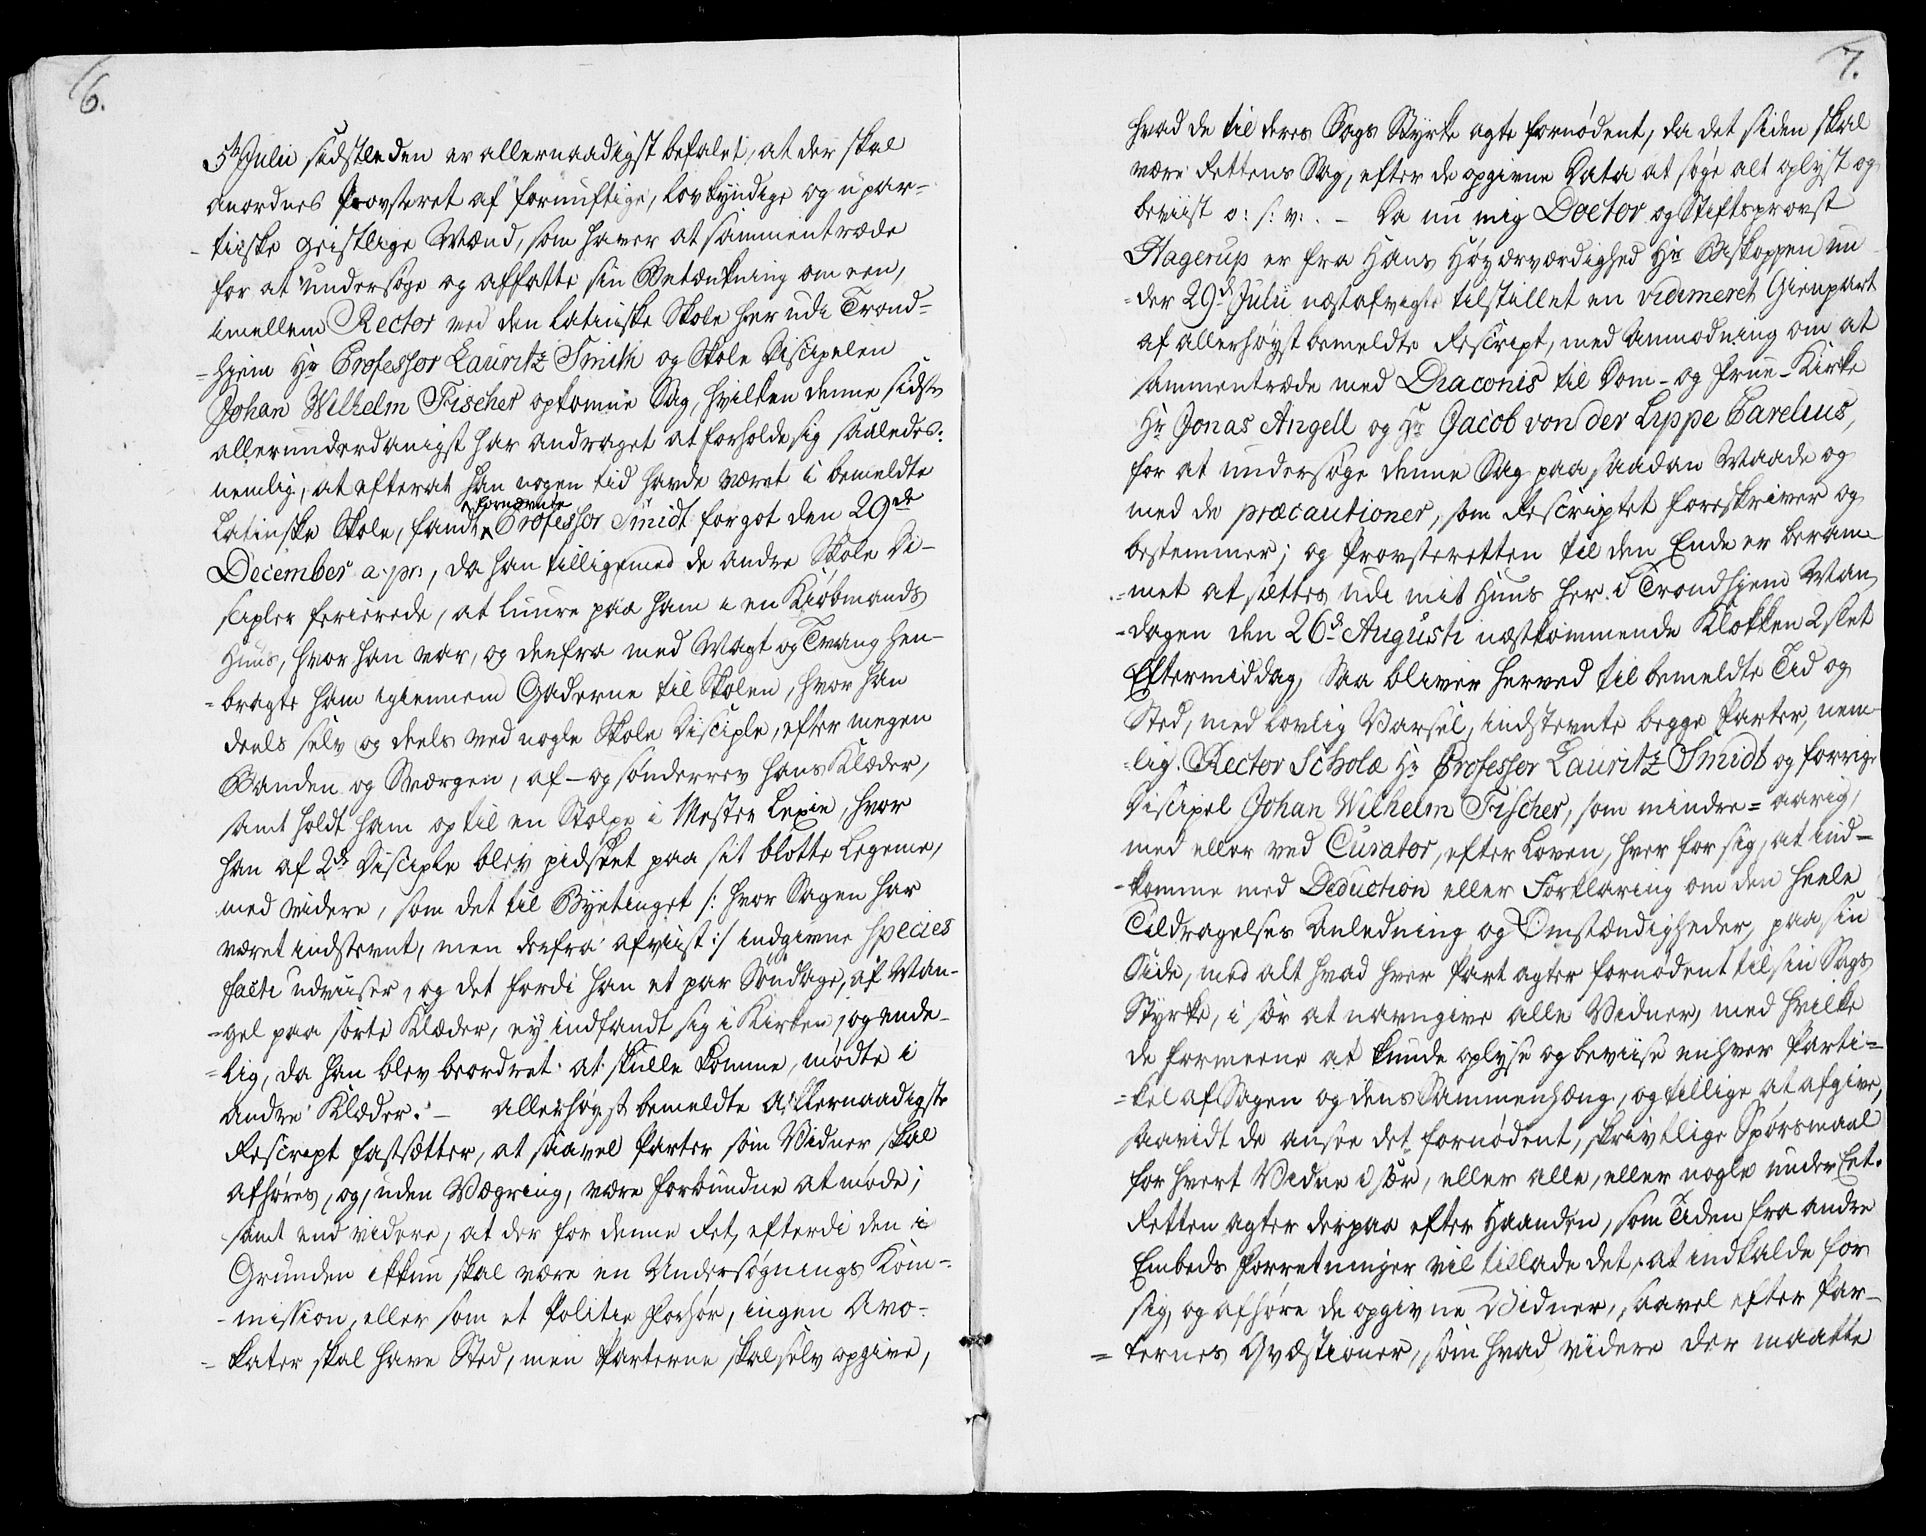 6.
5te Julii sidstleden er allernaadigst befalet, at der skal
anordnes Provsteret af fornuftige, lovkyndige og upar-
-tiske geistlige Mænd, som haver at sammentræde
for at undersøge og affatte sin Betænkning om een,
imellem Rector ved den latinske Skole her udi Trond-
=hjem Hr Professor Lauritz Smith og Skole Discipelen
Johan Wilhelm Fischer opkomne Sag, hvilken denne sidste
allerunderdanigst har andraget at forholde sig saaledes:
nemlig, at efterat han nogen tid havde været i bemeldte
Latinske Skole, fandt fornævnte Professor Smidt forgot den 29de
December a. pr:, da han tilligemed de andre Skole Di-
scipler ferierede, at luure paa ham i en Kiøbmands
Huus, hvor han var, og derfra med Magt og Tvang hen-
=bragte ham igiennem Gaderne til Skolen, hvor han
deels selv og deels ved nogle Skole Disciple, efter megen
Banden og Sværgen, af- og sønderrev hans Klæder,
samt holdt ham op til en Stolpe i Mester Lexie, hvor
han af 2de Disciple blev pidsket paa sit blotte Legeme,
med videre, som det til Byetinget /: hvor Sagen har
været indstevnt, men derfra afviist :/ indgivne Species
facti udviiser, og det fordi han et par Søndage, af Man-
=gel paa sorte Klæder, ey indfandt sig i Kirken; og ende-
=lig, da han blev beordret at skulle komme, mødte i
andre Klæder. - Allerhøyst bemeldte Allernaadigste
Rescript fastsætter, at saavel Parter som Vidner skal
afhøres, og, uden Vægring, være forbundne at møde;
samt end videre, at der for denne Ret, efterdi den i
Grunden ikkun skal være en Undersøgnings Kom-
-mission, eller som et Politie Forhør, ingen Avo-
-kater skal have Sted, men Parterne skal selv opgive,
7.
hvad de til deres Sags Styrke agte fornødent, da det siden skal
være Rettens Sag, efter de opgivne Data at søge alt oplyst og
beviist o: s: v: . - Da nu mig Doctor og Stiftsprovst
Hagerup er fra Hans Høyærværdighed Hr Biskoppen un
=der 29de Julii næstafvigte tilstillet en vidimeret Gienpart
af allerhøyst bemeldte Rescript, med Anmodning om at
sammentræde med Diaconis til Dom- og Frue-Kirke
Hr Jonas Angell og Hr Jacob von der Lyppe Parelius,
for at undersøge denne Sag paa saadan Maade og
med de præcautioner, som Rescriptet foreskriver og
bestemmer; og Provsteretten til den Ende er beram-
-met at sættes udi mit Huus her i Trondhjem Man
-dagen den 26de Augusti næstkommende Klokken 2 slet
Eftermiddag, Saa bliver herved til bemeldte Tid og
Sted, med lovlig Varsel, indstevnte begge Parter, nem-
-lig. Rector Scholæ Hr Professor Lauritz Smidt og forrige
Discipel Johan Wilhelm Fischer, som mindre=aarig,
med eller ved Curator, efter Loven, hver for sig, at ind-
-komme med Deduction eller Forklaring om den heele
Tildragelses Anledning og Omstændigheder, paa sin
Side, med alt hvad hver Part agter fornødent til sin Sags
Styrke, i sær at navngive alle Vidner, med hvilke
de formeene at kunde oplyse og beviise enhver Parti-
=kel af Sagen og dens Sammenhæng, og tillige at afgive,
saavidt de ansee det fornødent, skrivtlige Spørsmaal
for hvert Vidne i sær, eller alle, eller nogle under Eet.
Retten agter derpaa efter Haanden, som Tiden fra andre
Embeds Forretninger vil tillade det, at indkalde for
sig, og afhøre de opgivne Vidner, saavel efter Par-
= ternes Qvæstioner, som hvad videre der maatte